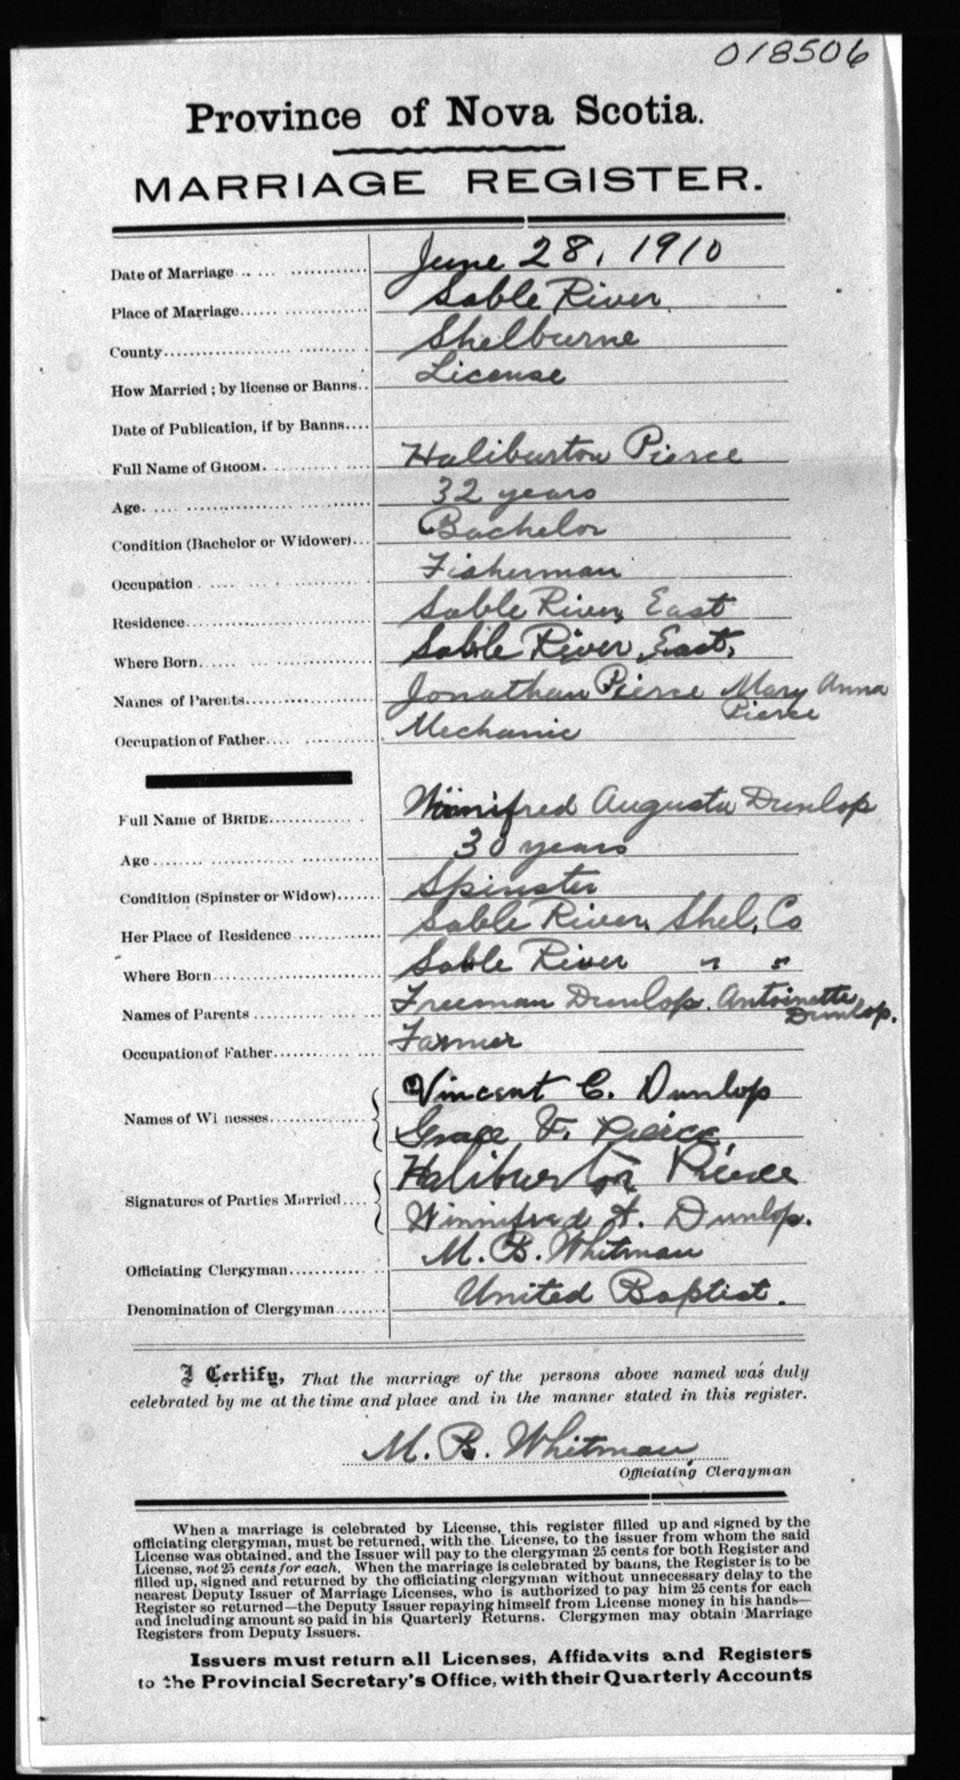 018506
Province of Nova Scotia.
MARRIAGE REGISTER.
Date of Marriage June 28, 1910
Place of Marriage Sable River
County Shelburne
How Married; by license or Banns License
Date of Publication, if by Banns
Full Name of GROOM. Haliburton Pierce
Age 32 years
Condition (Bachelor or Widower) Bachelor
Occupation Fisherman
Residence Sable River, East
Where Born Sable River, East,
Names of Parents Jonathan Pierce Mary Anna
Pierce
Occupation of Father Mechanic
Full Name of BRIDE Winnifred Augusta Dunlop
Age 30 years
Condition (Spinster or Widow) Spinster
Her Place of Residence Sable River, Shel, Co
Where Born Sable River " "
Names of Parents Freeman Dunlop. Antoinette
Dunlop.
Occupation of Father Farmer
Names of Wi nesses Vincent C. Dunlop
Grace F. Pierce,
Signatures of Parties Married Haliburton Pierce
Winnifred A. Dunlop.
Officiating Clergyman M. B. Whitman
Denomination of Clergyman United Baptist.
I Certify, That the marriage of the persons above named was duly
celebrated by me at the time and place and in the manner stated in this register.
M. B. Whitman
Officiating Clergyman
When a marriage is celebrated by License, this register filled up and signed by the
officiating clergyman, must be returned, with the License, to the issuer from whom the said
License was obtained, and the Issuer will pay to the clergyman 25 cents for both Register and
License, not 25 cents for each. When the marriage is celebrated by banns, the Register is to be
filled up, signed and returned by the officiating clergyman without unnecessary delay to the
nearest Deputy Issuer of Marriage Licenses, who is authorized to pay him 25 cents for each
Register so returned—the Deputy Issuer repaying himself from License money in his hands—
and including amount so paid in his Quarterly Returns. Clergymen may obtain Marriage
Registers from Deputy Issuers.
Issuers must return all Licenses, Affidavits and Registers
to the Provincial Secretary's Office, with their Quarterly Accounts